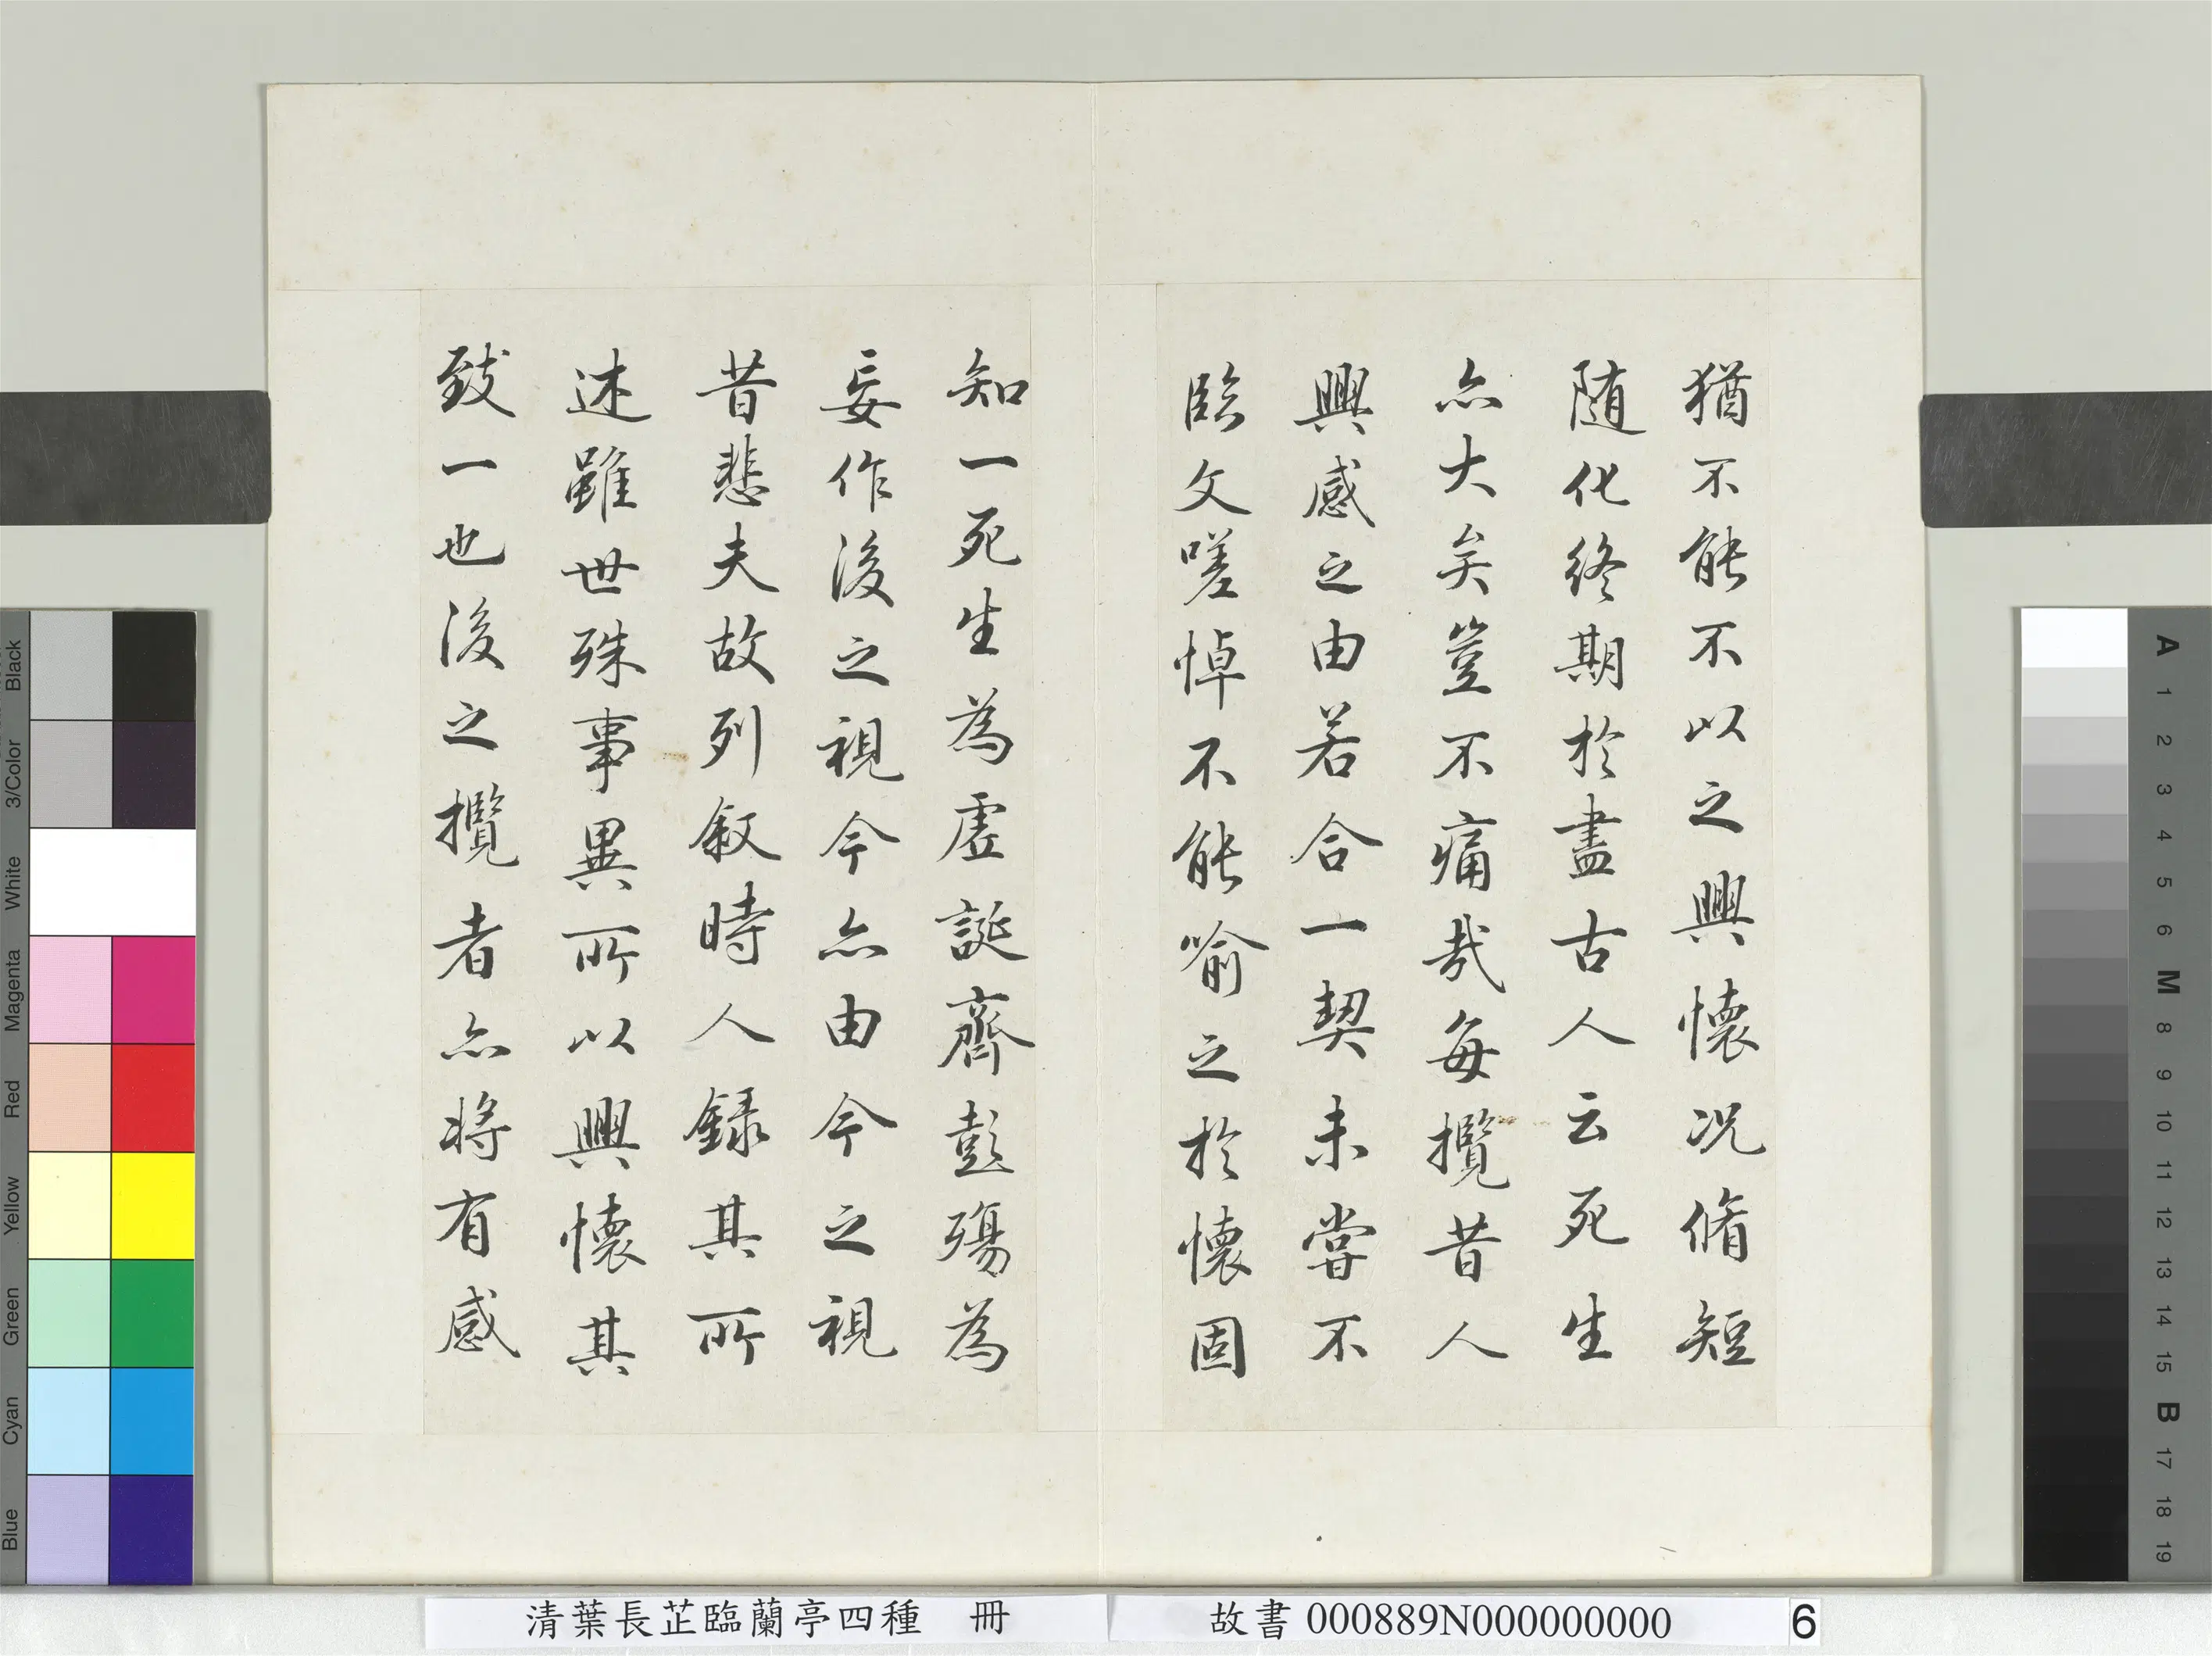 猶不能不以之興懷况脩短
随化終期於盡古人云死生
亦大矣豈不痛哉每攬昔人
興感之由若合一契未嘗不
臨文嗟悼不能喻之於懷固
知一死生為虛誕齊彭殤為
妄作後之視今亦由今之視
昔悲夫故列叙時人録其所
述雖世殊事異所以興懷其
致一也後之攬者亦將有感
清葉長芷臨蘭亭四種 冊
故書 000889N000000000
6
Black
3/Color
White
Magenta
Red
Yellow
Green
Cyan
Blue
A
1
2
3
4
5
6
M
8
9
10
11
12
13
14
15
B
17
18
19